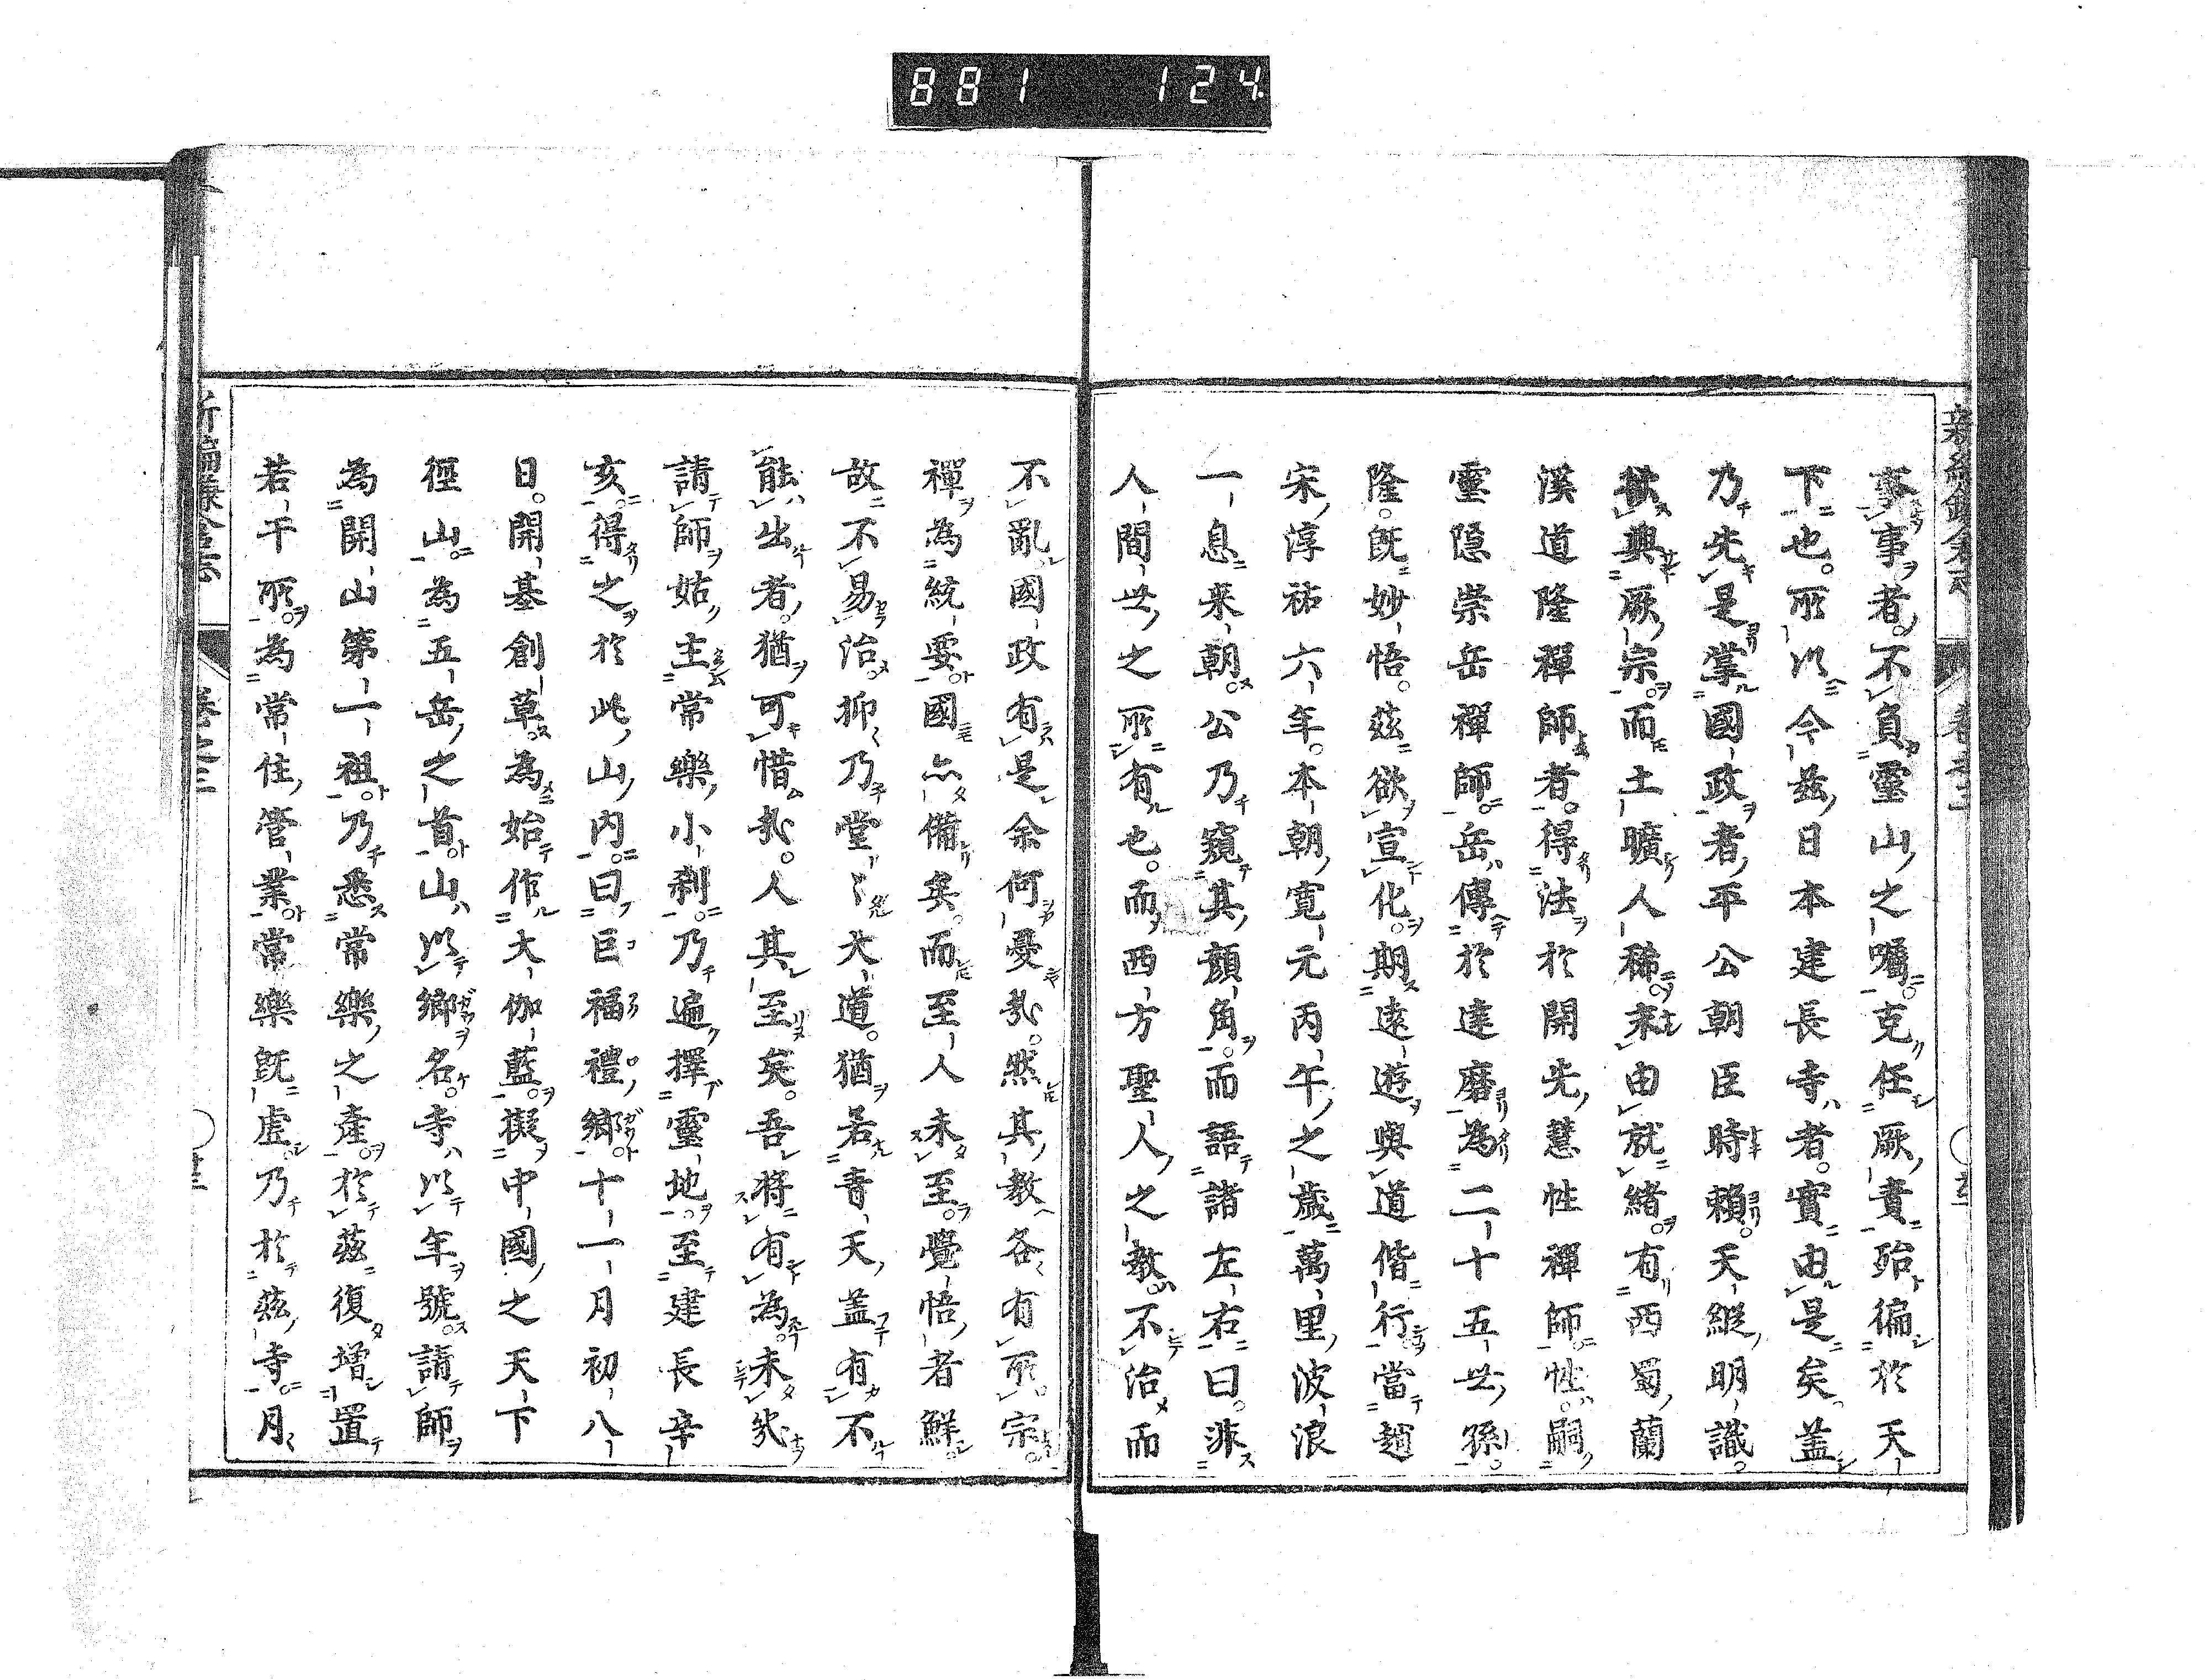 881 124
新編鎌倉志 卷之三
事事者不負靈山之囑克任厥責殆徧於天
下也所以今茲日本建長寺者實由是矣蓋
乃先是掌國政者平公朝臣時賴天縱明識
欲興厥宗而土曠人稀未由就緒有西蜀蘭
溪道隆禪師者得法於開光慧性禪師性嗣
靈隱崇岳禪師岳傳於達磨為二十五世孫
隆既妙悟茲欲宣化期遠遊與道偕行當趙
宋淳祐六年本朝寬元丙午之歲萬里波浪
一息来朝公乃窺其顏角而語諸左右曰非
人間世之所有也而西方聖人之教不治而
不亂國政有是余何憂哉然其教各有所宗
禪為統要國亦備矣而至人未至覺悟者鮮
故不易治抑乃堂〻大道猶若青天蓋有不
能出者猶可惜哉人其至矣吾將有為未幾
請師姑主常樂小刹乃遍擇靈地至建長辛
亥得之於此山內曰巨福禮鄉十一月初八
日開基創草為始作大伽藍擬中國之天下
徑山為五岳之首山以鄉名寺以年號請師
為開山第一祖乃悉常樂之產於茲復增置
若干所為常住管業常樂既虛乃於茲寺月
新編鎌倉志 卷之三